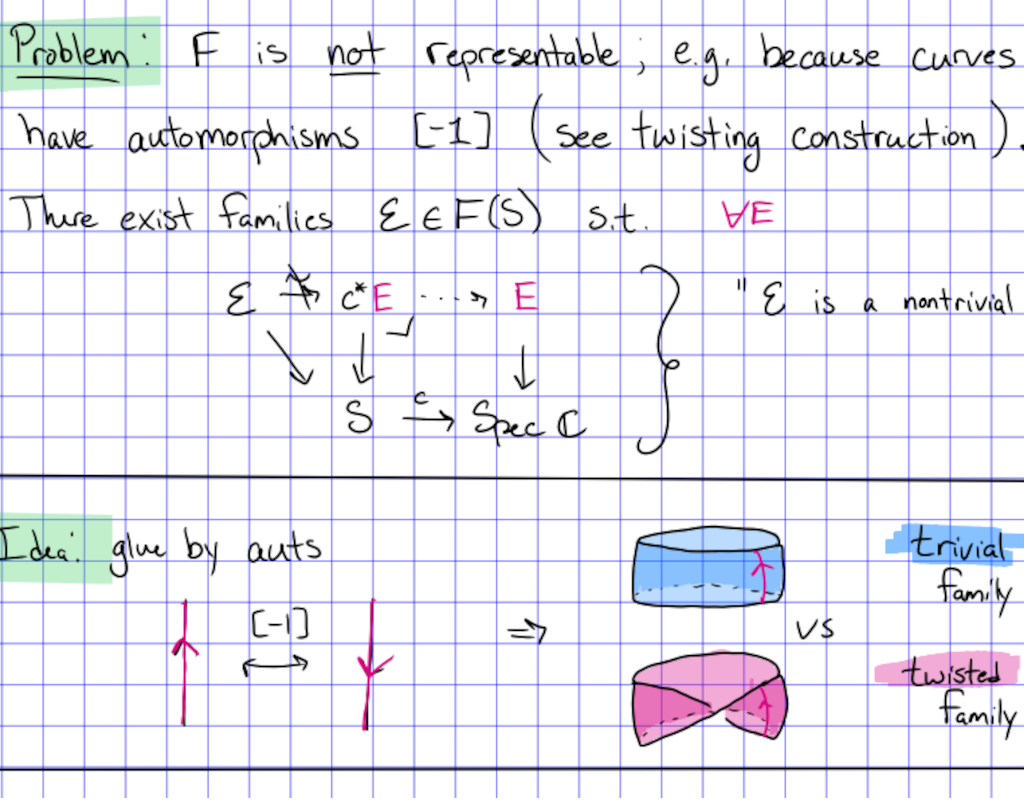 Problem: F is not representable; e.g. because curves
have automorphisms [-1] (see twisting construction).
There exist families ℰ ∈ F(S) s.t. ∀E
ℰ ≁→ c*E ⋯→ E " ℰ is a nontrivial
S →ᶜ Spec ℂ
Idea: glue by auts
[-1]
↔
⇒
trivial
family
vs
twisted
family